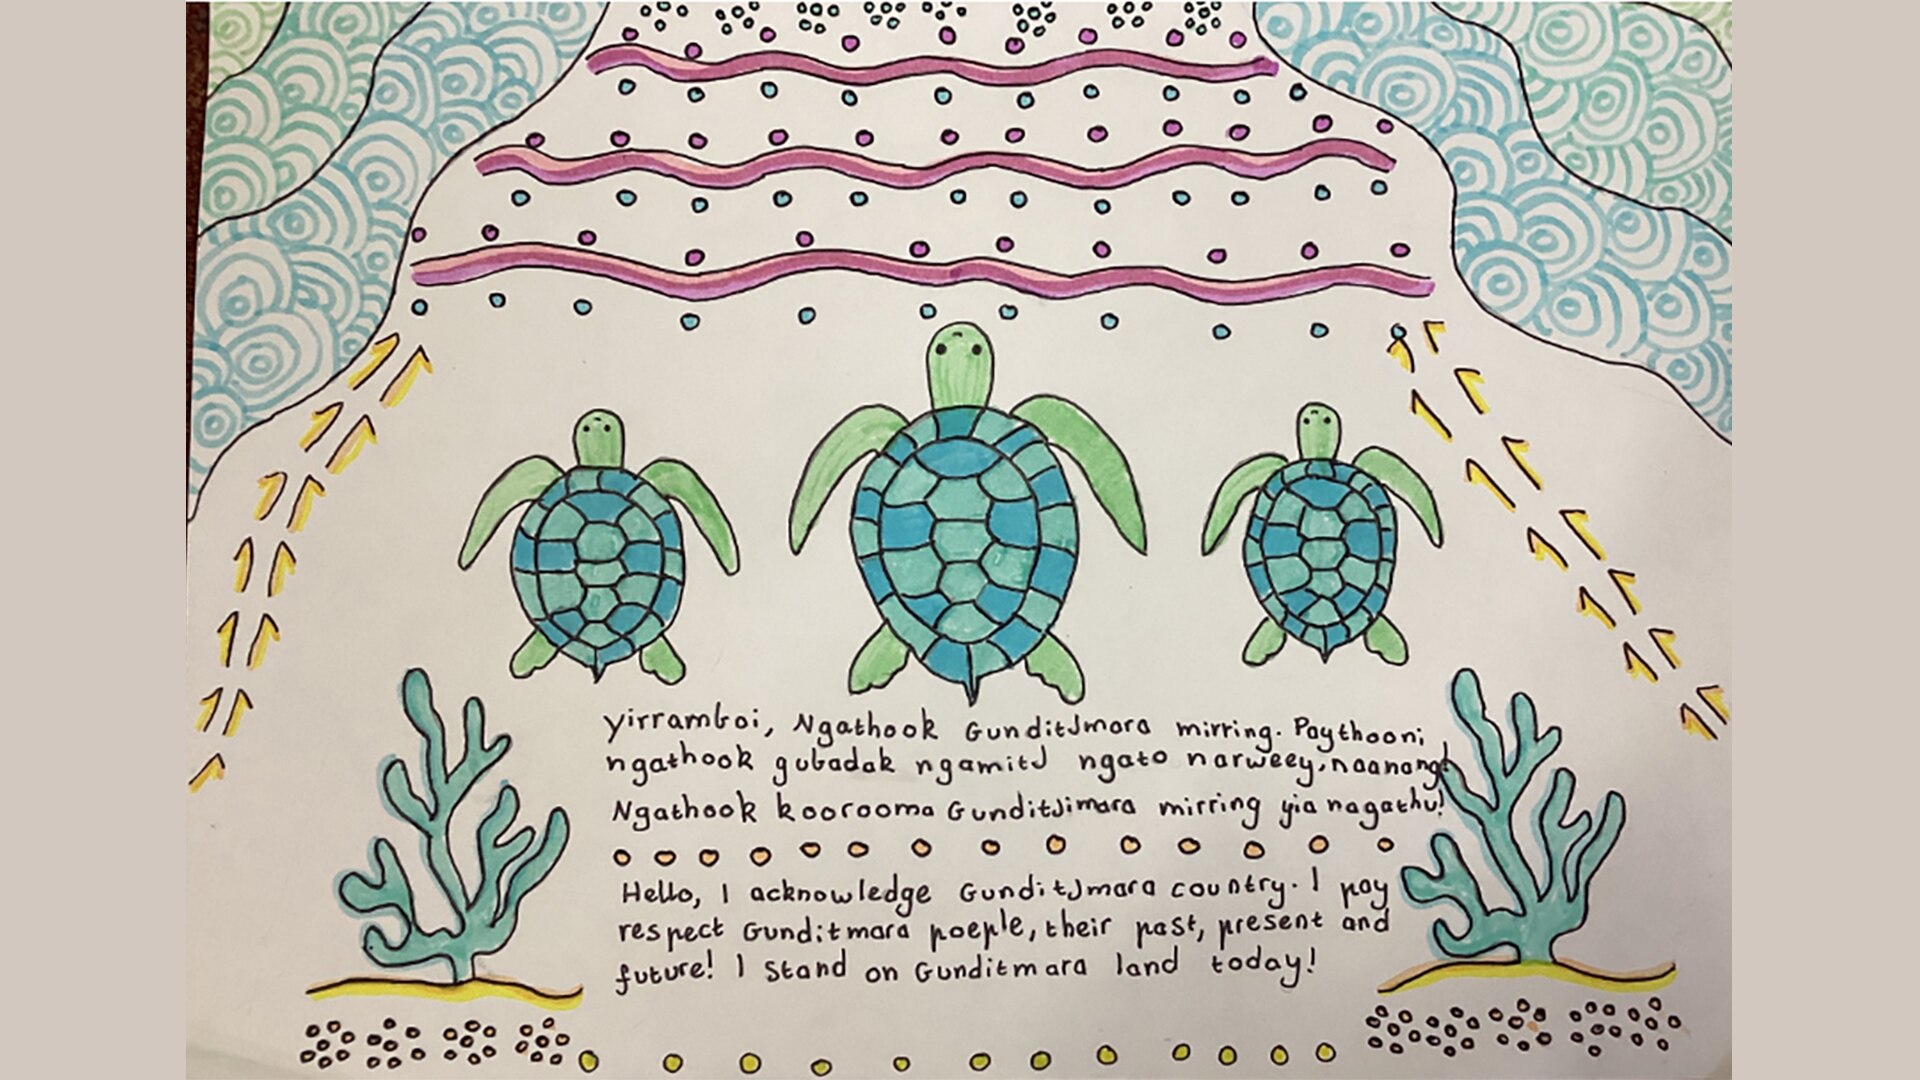 Yirramboi, Ngathook GunditJmara mirring. Paythooni
ngathook gubadak ngamitJ ngato narweey, naanang!
Ngathook koorooma GunditJimara mirring yia nagathu!
Hello, I acknowledge GunditJmara country. I pay
respect Gunditmara poeple, their past, present and
future! I Stand on Gunditmara land today!